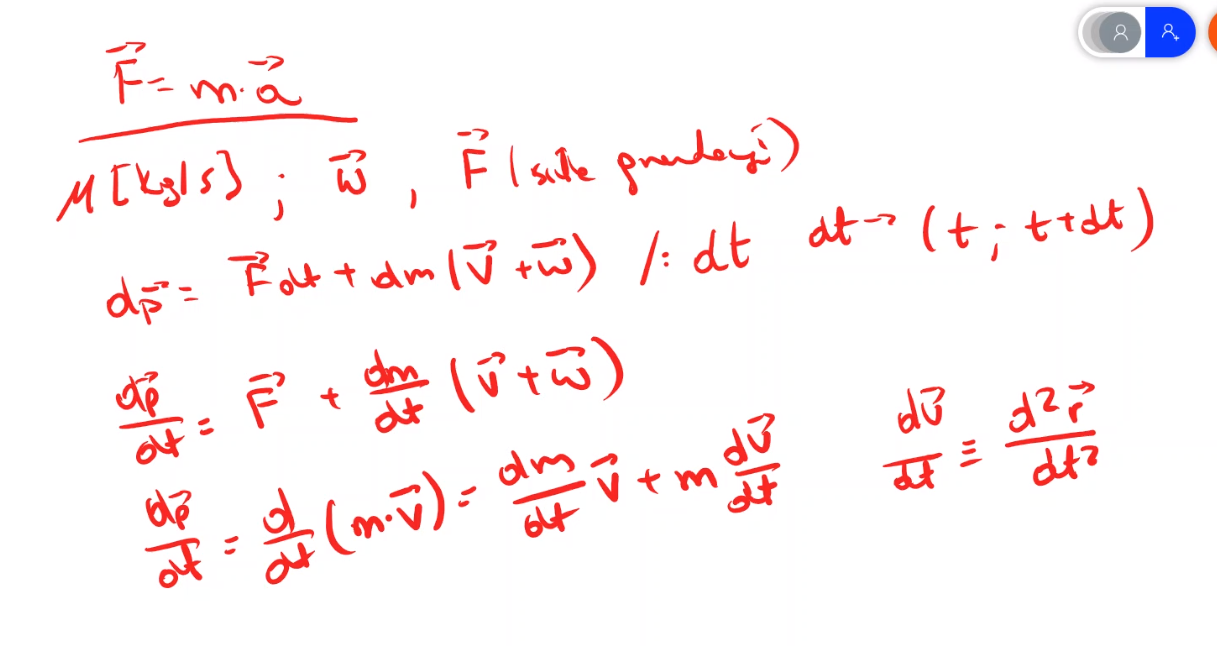 F⃗ = m·a⃗
μ [kg/s] ; w⃗ , F⃗ (siła grawitacji)
dp⃗ = F⃗ dt + dm (v⃗ + w⃗) /: dt dt → (t; t+dt)
dp⃗/dt = F⃗ + dm/dt (v⃗ + w⃗)
dp⃗/dt = d/dt (m·v⃗) = dm/dt v⃗ + m dv⃗/dt dv⃗/dt ≡ d²r⃗/dt²